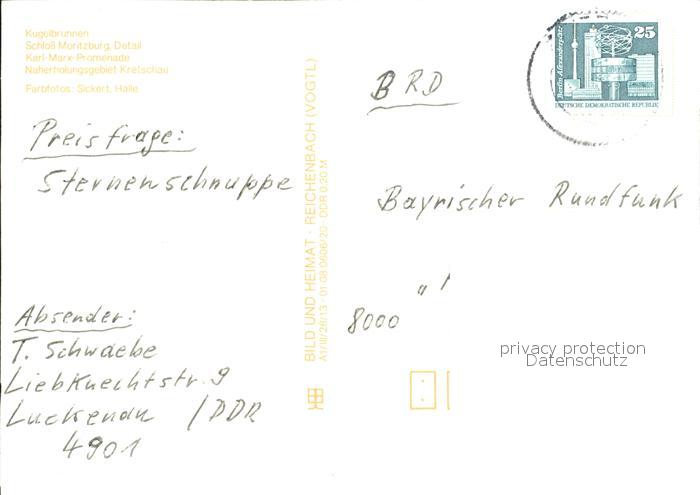 Kugelbrunnen
Schloß Moritzburg, Detail
Karl-Marx-Promenade
Naherholungsgebiet Kretschau
Farbfotos: Sickert, Halle
Preisfrage:
Sternenschnuppe
Absender:
T. Schwaebe
Liebknechtstr. 9
Luckenau /DDR
4901
BILD UND HEIMAT · REICHENBACH (VOGTL)
A1/III/26/13 · 01 08 0606/20 · DDR 0,20 M
BRD
Bayrischer Rundfunk
8000
privacy protection
Datenschutz
25
Berlin, Alexanderplatz
DEUTSCHE DEMOKRATISCHE REPUBLIK